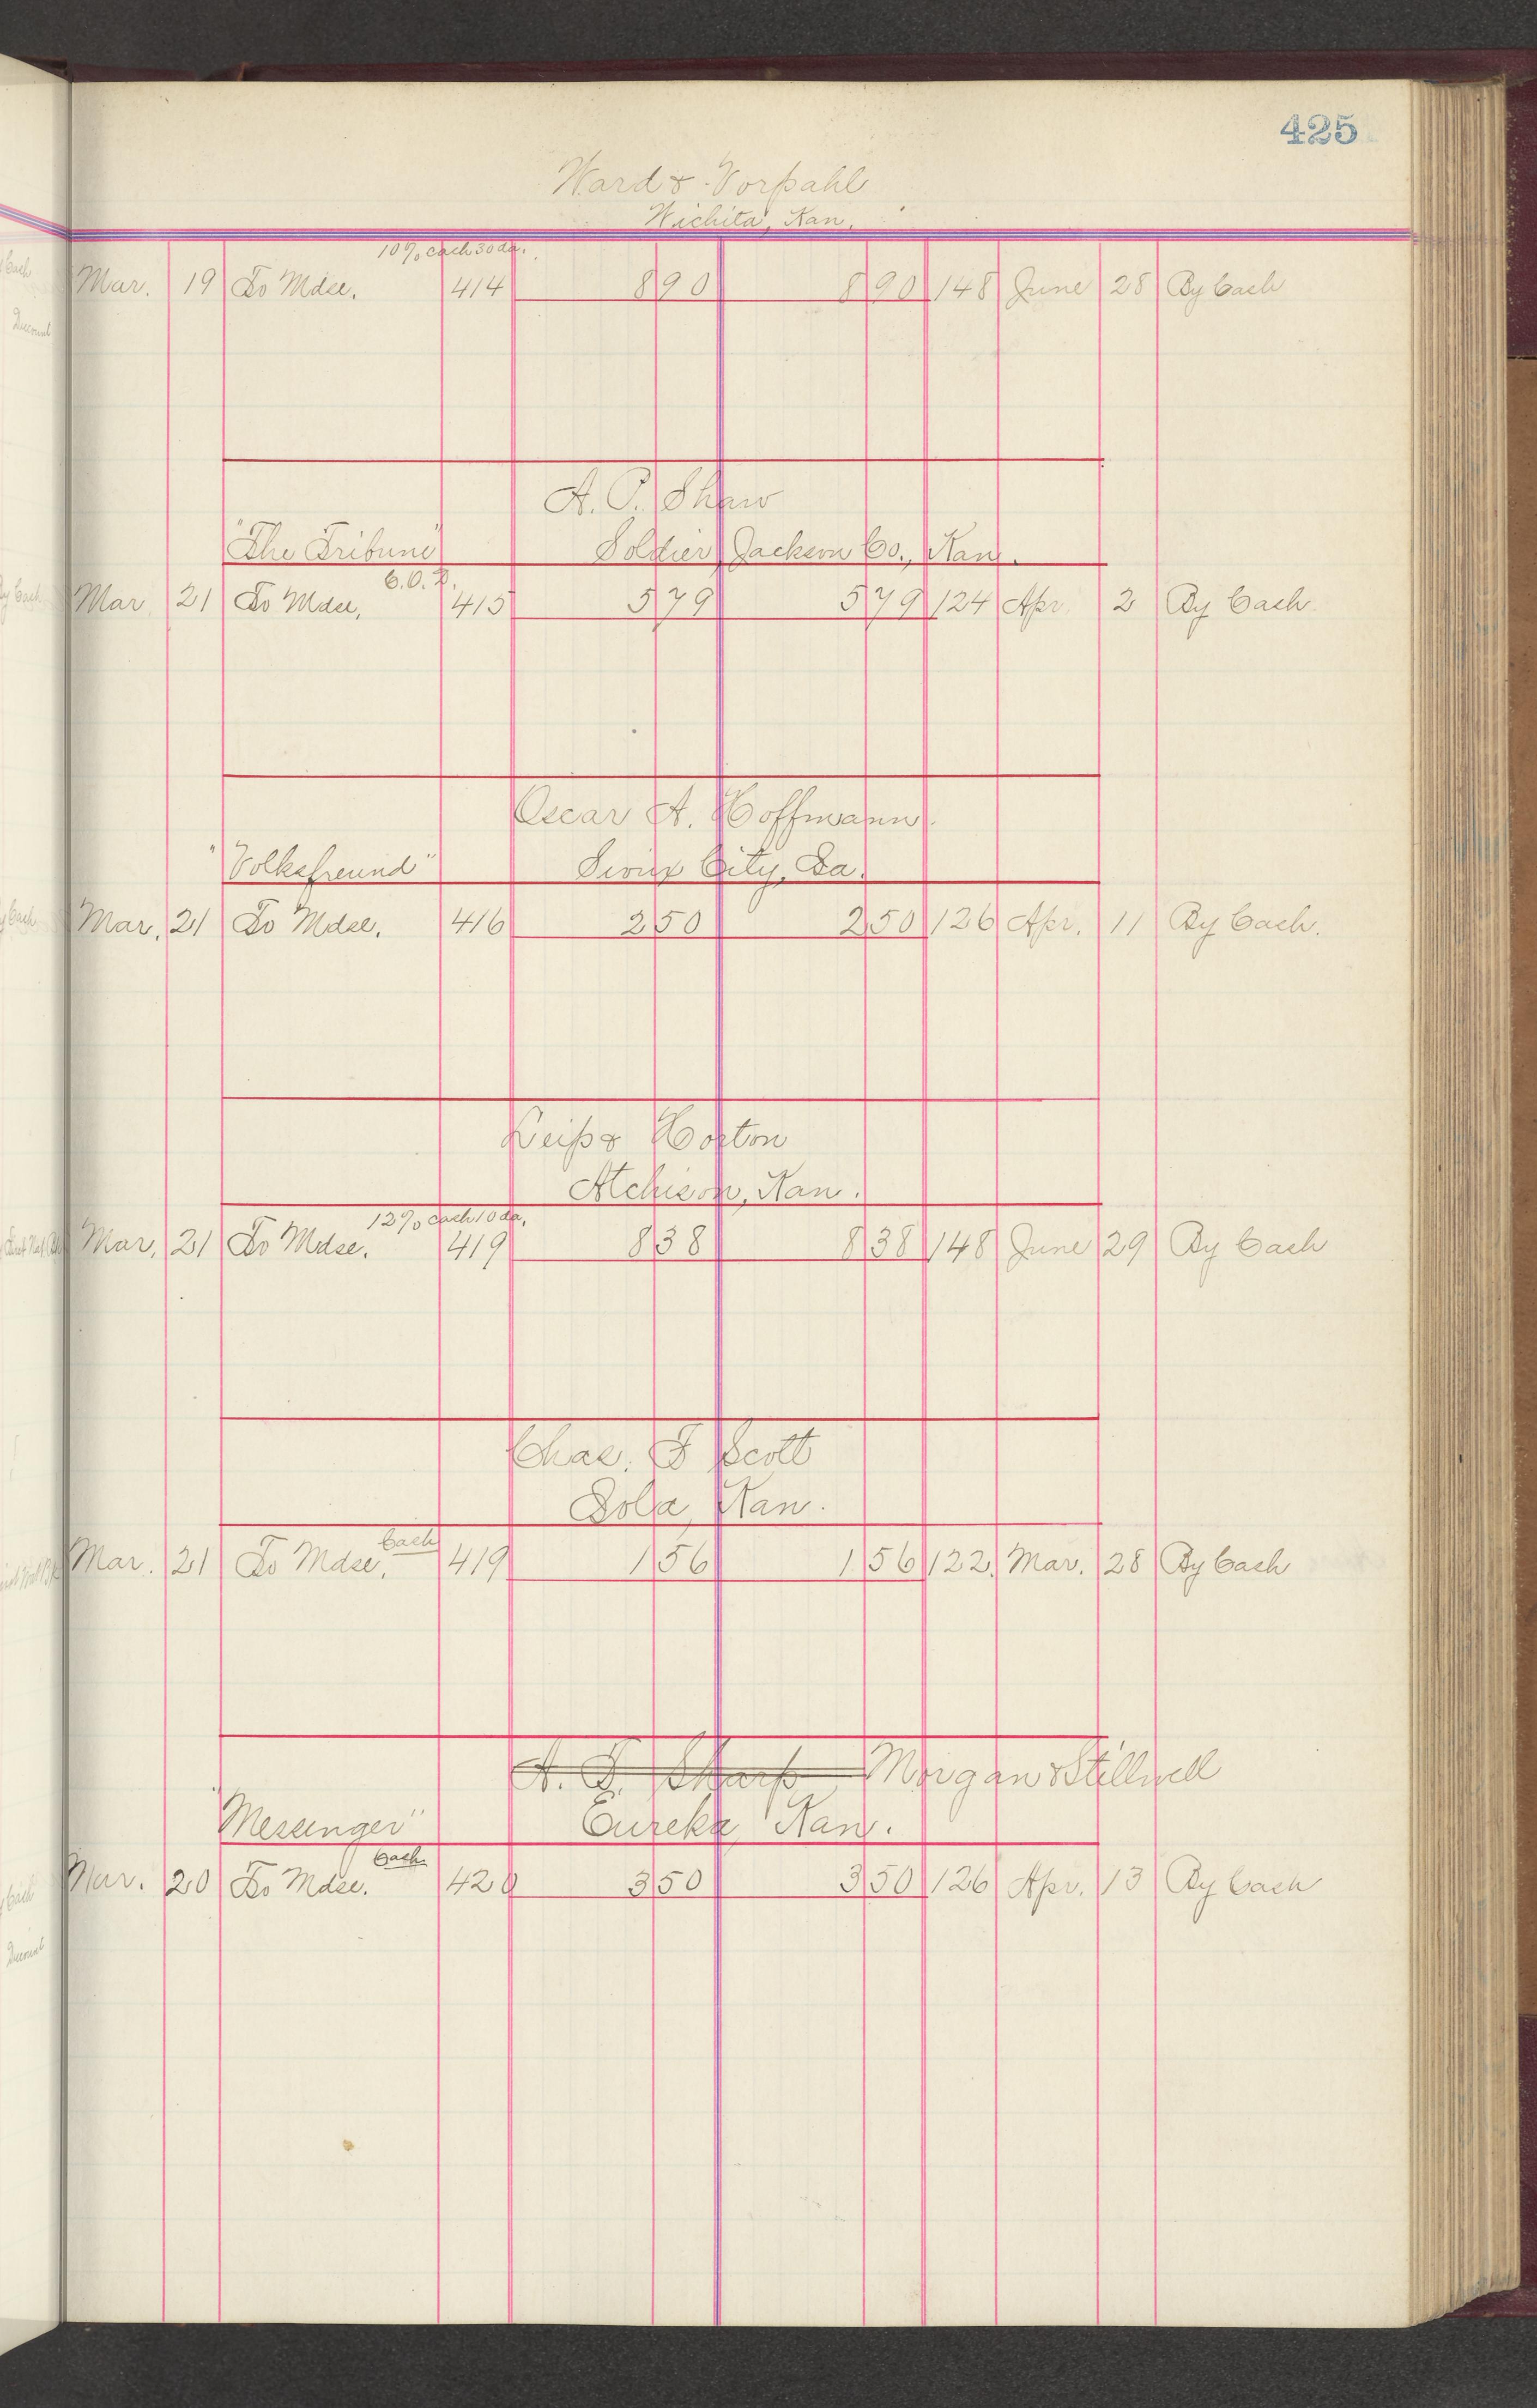 425
Ward & Vorpahl
Wichita, Kan.
10% cash 30 da.
Mar. 19 To Mdse. 414 8 90 8 90 148 June 28 By Cash
A. P. Shaw
"The Tribune" Soldier, Jackson Co., Kan.
C.O.D.
Mar. 21 To Mdse, 415 5 79 5 79 124 Apr. 2 By Cash.
Oscar A. Hoffmann.
"Volksfreund" Sioux City, Ia.
Mar. 21 To Mdse. 416 2 50 2 50 126 Apr. 11 By Cash.
& Horton
Atchison, Kan.
12% cash 10 da.
Mar. 21 To Mdse. 419 8 38 8 38 148 June 29 By Cash
Chas. F Scott
Iola, Kan.
Cash
Mar. 21 To Mdse. 419 1 56 1 56 122. Mar. 28 By Cash
A. F. Sharp Morgan & Stillwell
"Messenger" Eureka, Kan.
Cash
Mar. 20 To Mdse. 420 3 50 3 50 126 Apr. 13 By Cash